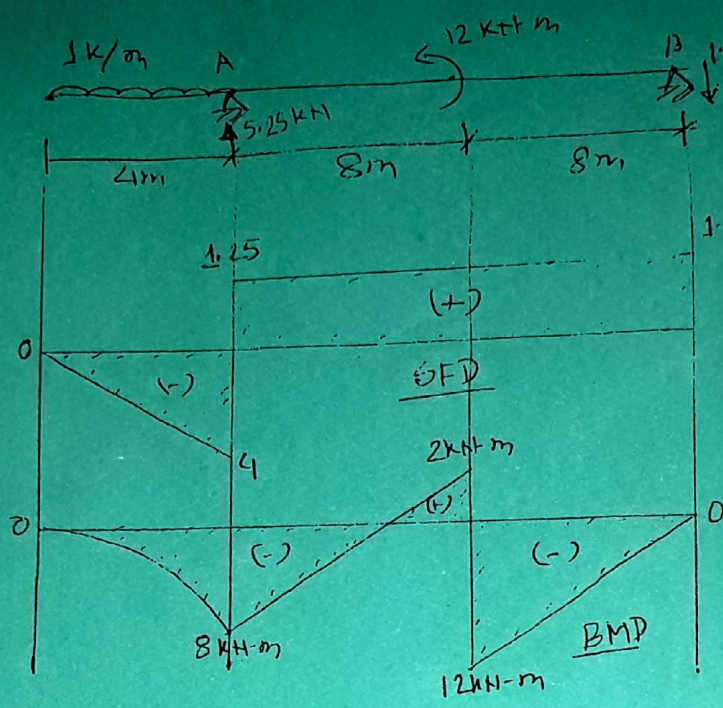 1k/m A 12 kN m B 1.
5.25kN
4m 8m 8m
1.25 1.
(+)
0
(-) SFD
4 2kN-m
0 (+) 0
(-) (-)
8kN-m BMD
12kN-m